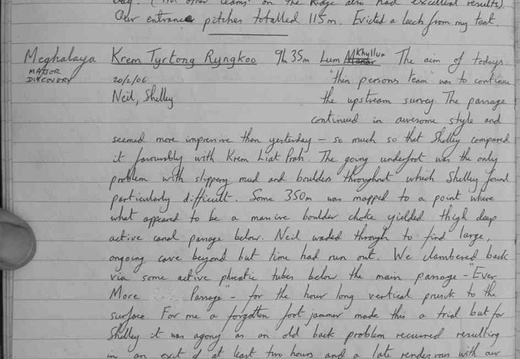 day. (The other teams on the Ridge also had excellent results)
Our entrance pitches totalled 115m. Evicted a leech from my tent.
Meghalaya Krem Tyrtong Ryngkoo 9h 35m Lum Khyllun The aim of todays
MAJOR DISCOVERY 20/2/06 "thin persons team" was to continue
Neil, Shelley the upstream survey. The passage
continued in awesome style and
seemed more impressive than yesterday – so much so that Shelley compared
it favourably with Krem Liat Prah. The going underfoot was the only
problem with slippery mud and boulders throughout which Shelley found
particularly difficult. Some 350m was mapped to a point where
what appeared to be a massive boulder choke yielded thigh deep
active canal passage below. Neil waded through to find large,
ongoing cave beyond but time had run out. We clambered back
via some active phreatic tubes below the main passage – "Ever
More Passage" – for the hour long vertical prusik to the
surface. For me a forgotten foot jammer made this a trial but for
Shelley it was agony as an old back problem recurred resulting
in an exit of at least two hours and a late rendezvous with our